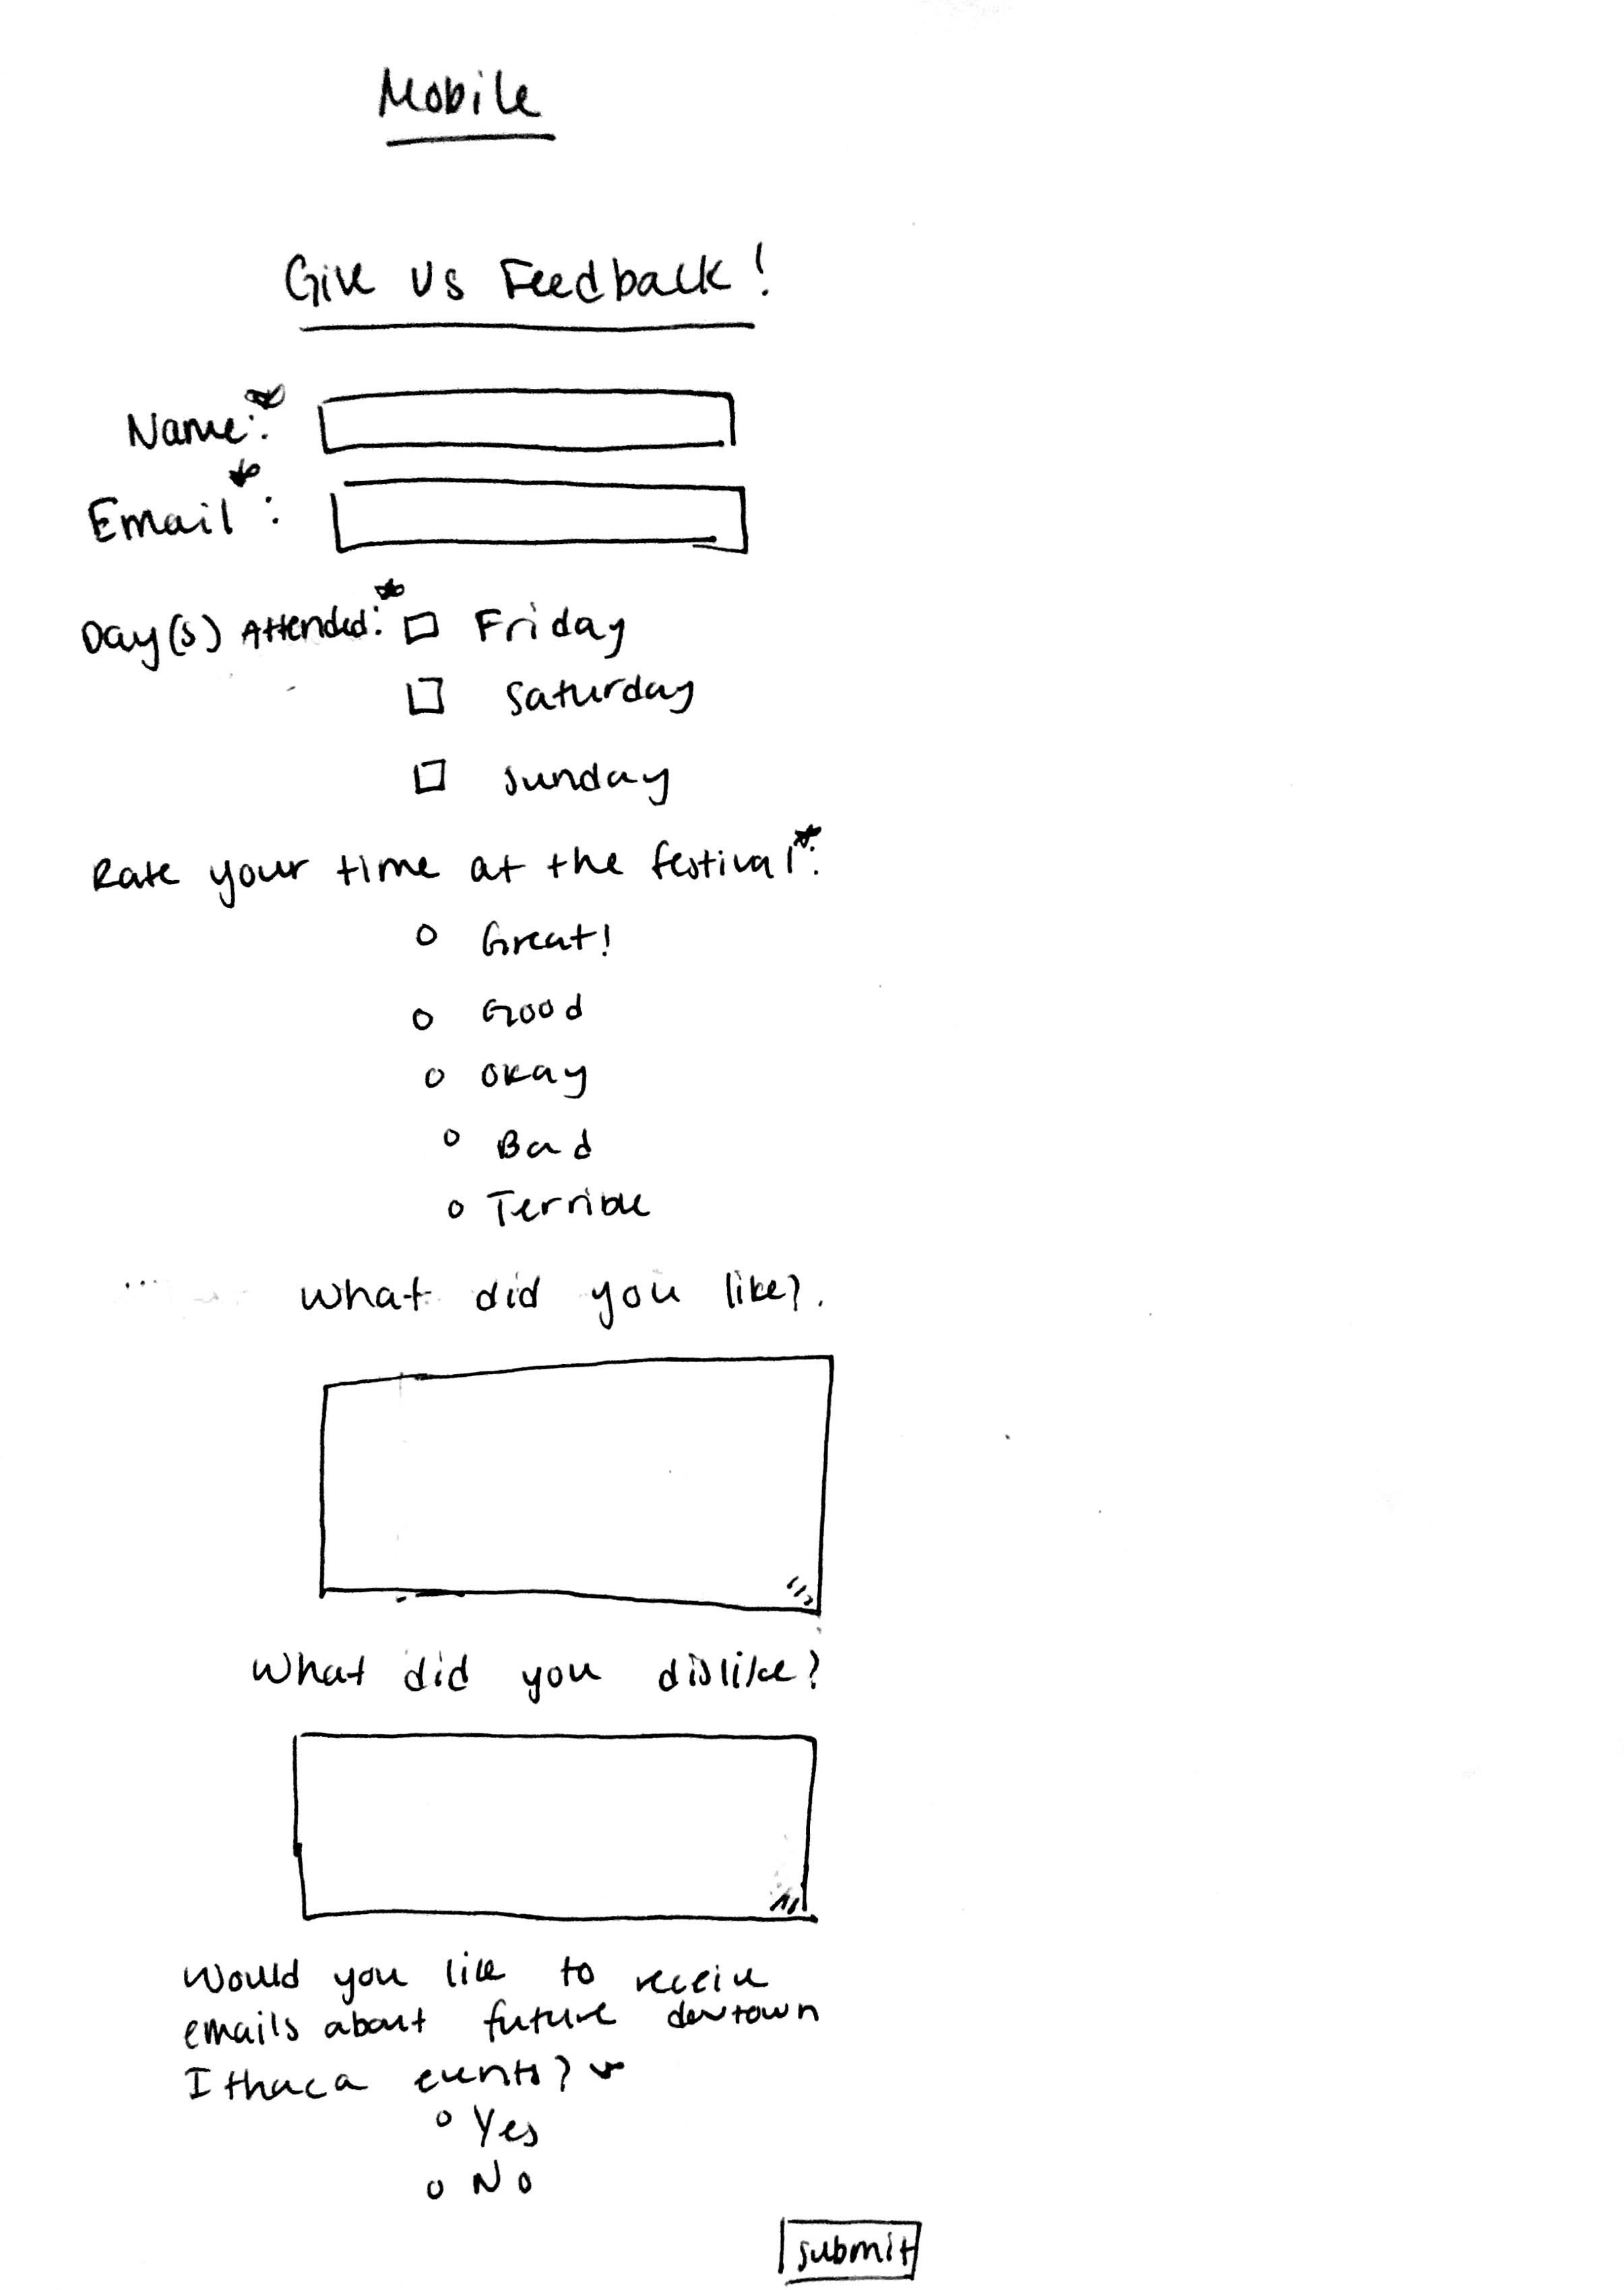 Mobile
Give Us Feedback!
Name:*
Email*:
Day(s) Attended:* Friday
Saturday
Sunday
Rate your time at the festival*:
Great!
Good
Okay
Bad
Terrible
What did you like?
What did you dislike?
Would you like to receive
emails about future dowtown
Ithaca events? *
Yes
No
submit